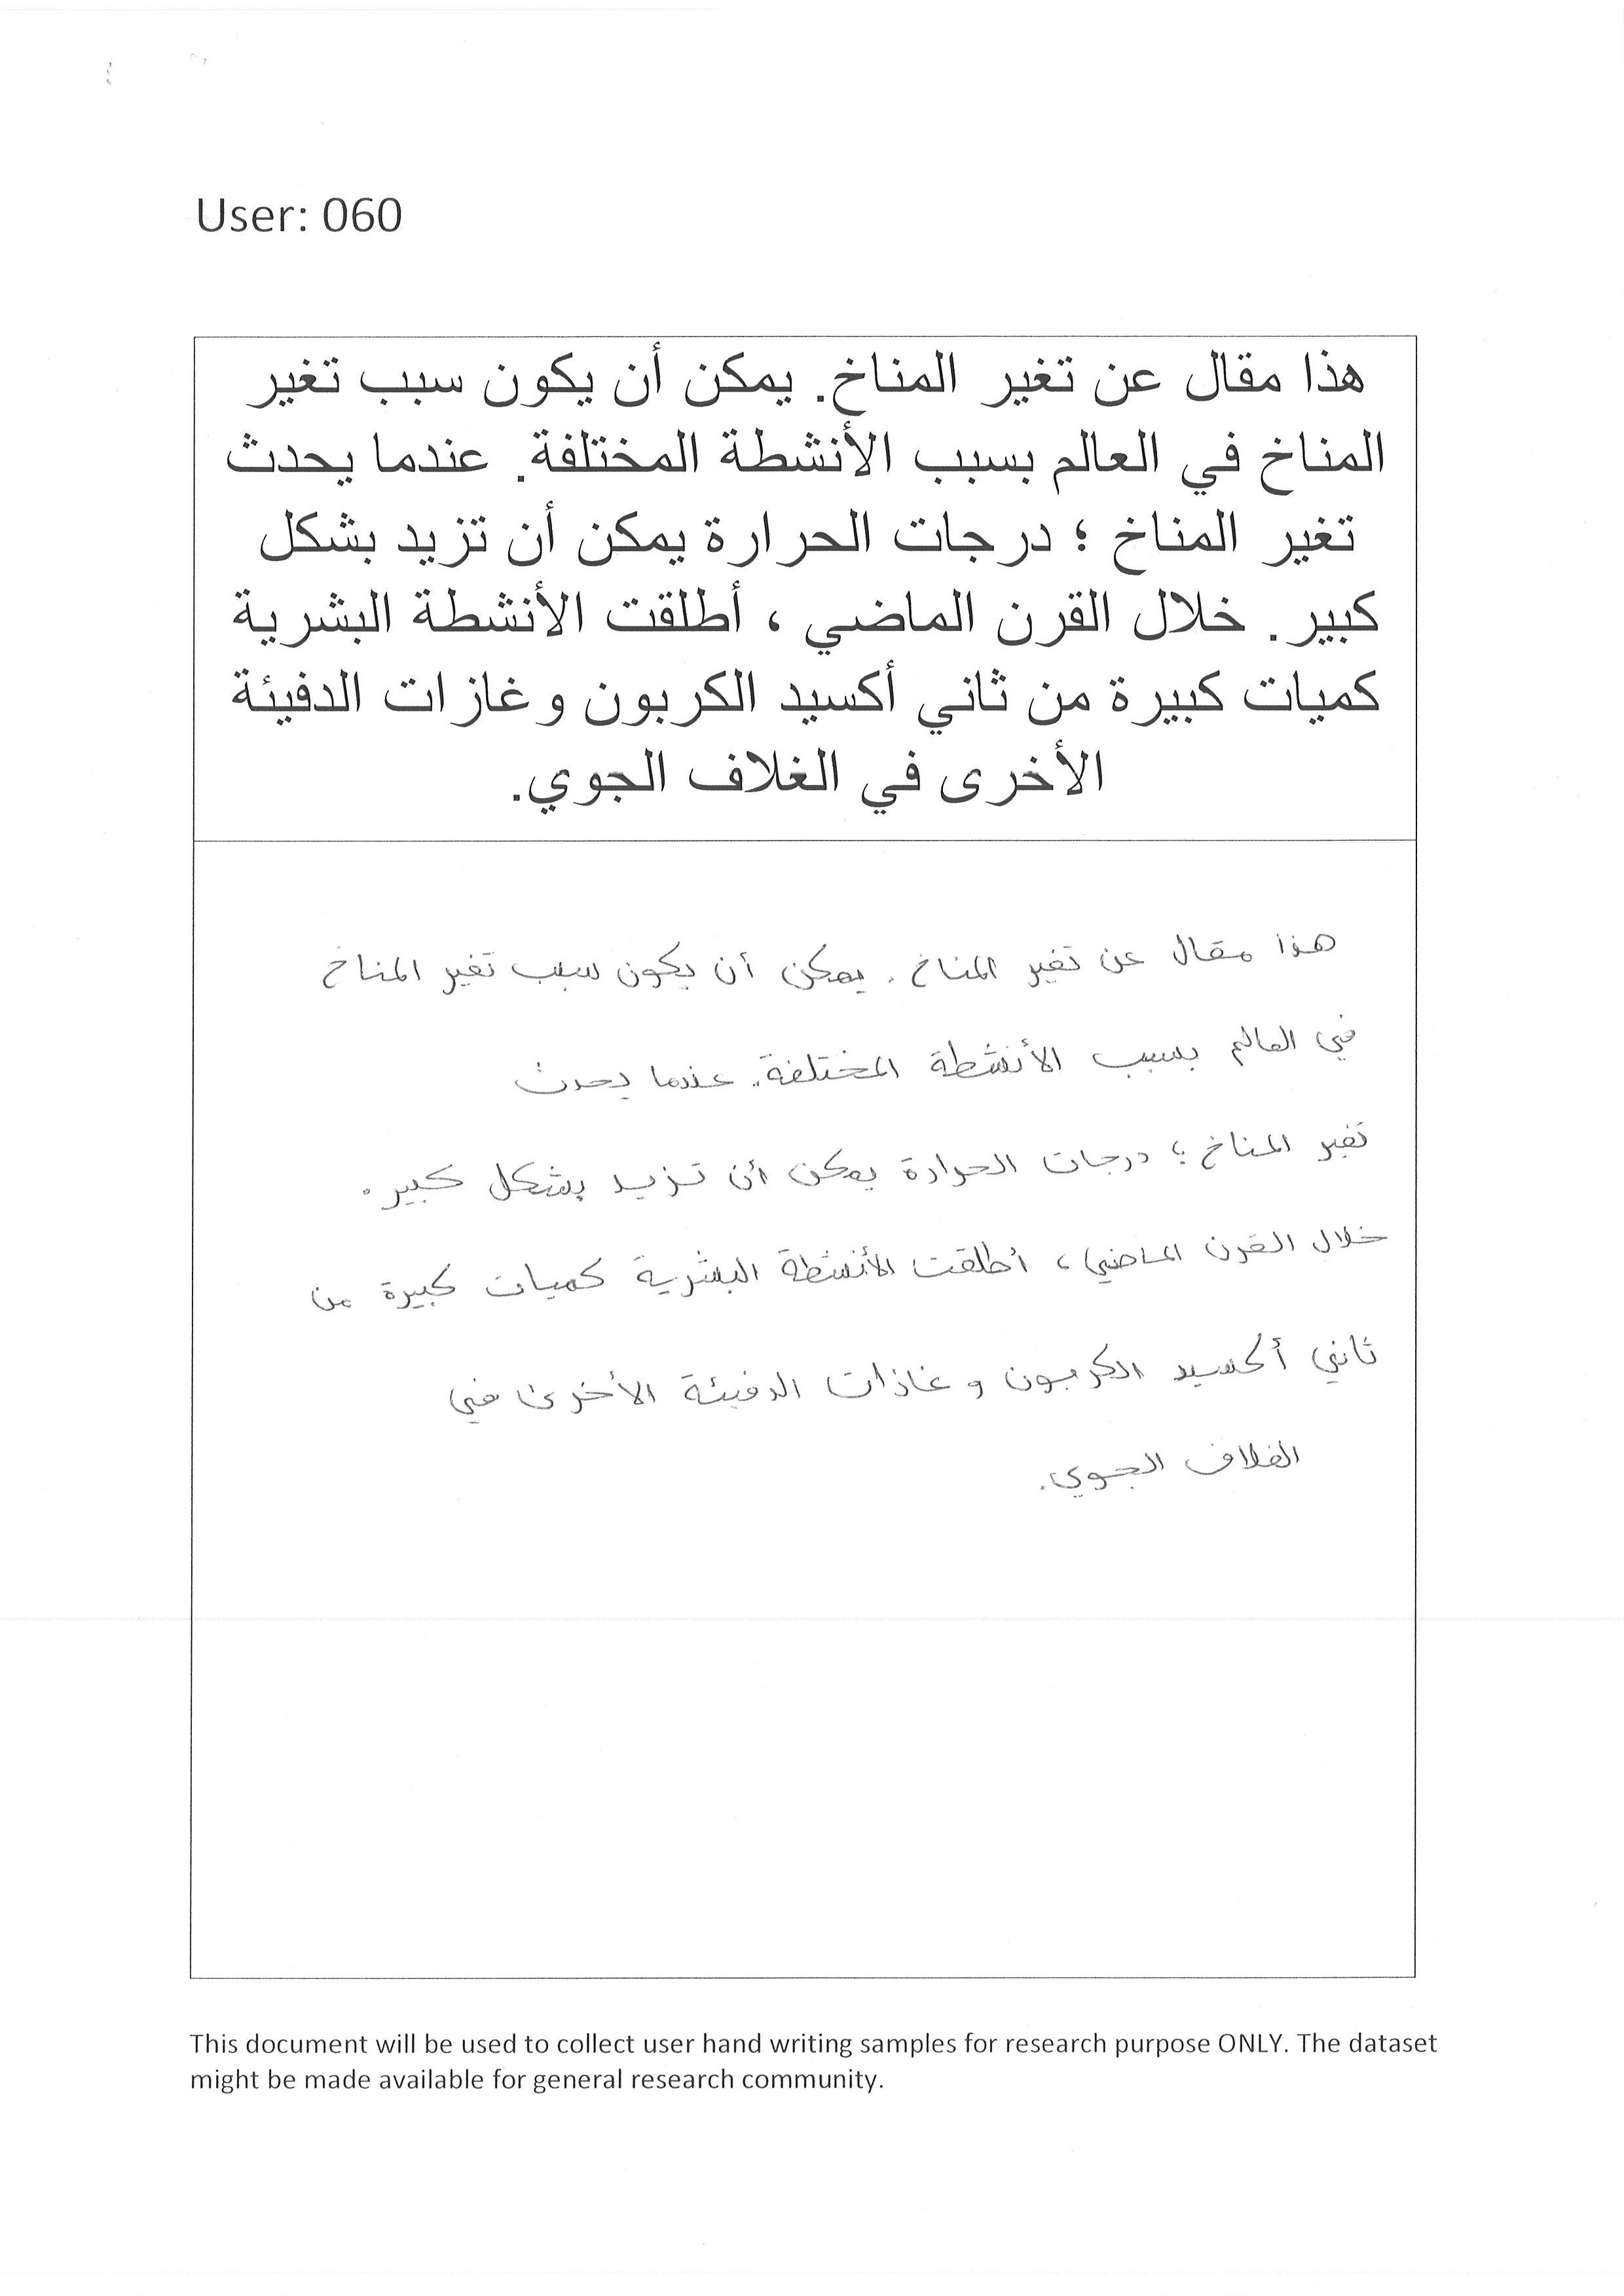 User: 060
هذا مقال عن تغير المناخ. يمكن أن يكون سبب تغير
المناخ في العالم بسبب الأنشطة المختلفة. عندما يحدث
تغير المناخ ؛ درجات الحرارة يمكن أن تزيد بشكل
كبير. خلال القرن الماضي ، أطلقت الأنشطة البشرية
كميات كبيرة من ثاني أكسيد الكربون وغازات الدفيئة
الأخرى في الغلاف الجوي.
هذا مقال عن تغير المناخ. يمكن أن يكون سبب تغير المناخ
في العالم بسبب الأنشطة المختلفة. عندما يحدث
تغير المناخ ؛ درجات الحرارة يمكن أن تزيد بشكل كبير.
خلال القرن الماضي ، أطلقت الأنشطة البشرية كميات كبيرة من
ثاني أكسيد الكربون وغازات الدفيئة الأخرى في
الغلاف الجوي.
This document will be used to collect user hand writing samples for research purpose ONLY. The dataset
might be made available for general research community.